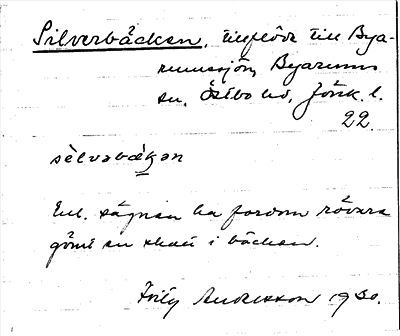 Silverbäcken, tillflöde till Bya-
rumssjön, Byarums
sn, Östbo hd, Jönk. l.
22.
sèlvəbækən
Enl. sägnen ha fordom rövare
gömt en skatt i bäcken.
Fritz Andersson 1930.